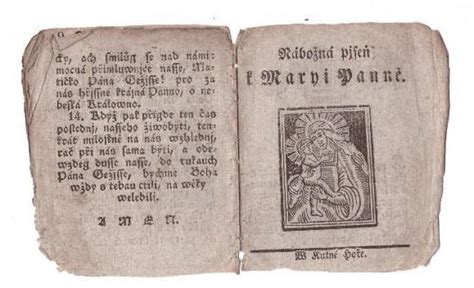 cky, ach smiluġ se nad námi
mocná přimluwnice nasse, Ma-
tičko Pána Gežisse! pro za
nás hřjssné krásná Panno, o ne-
beská Králowno.
14. Když pak přigde ten čas
poslednj, nasseho žiwobytj, ten-
krát milostně na nás wzhlednj,
rač při nás sama býti, a ode-
wzdeg dusse nasse, do rukauch
Pána Gežisse, bychme Boha
wždy s tebau ctili, na wěky
welebili.
A M E N.
Nábožná pjseň
k Maryi Panně.
W Kutné Hoře.